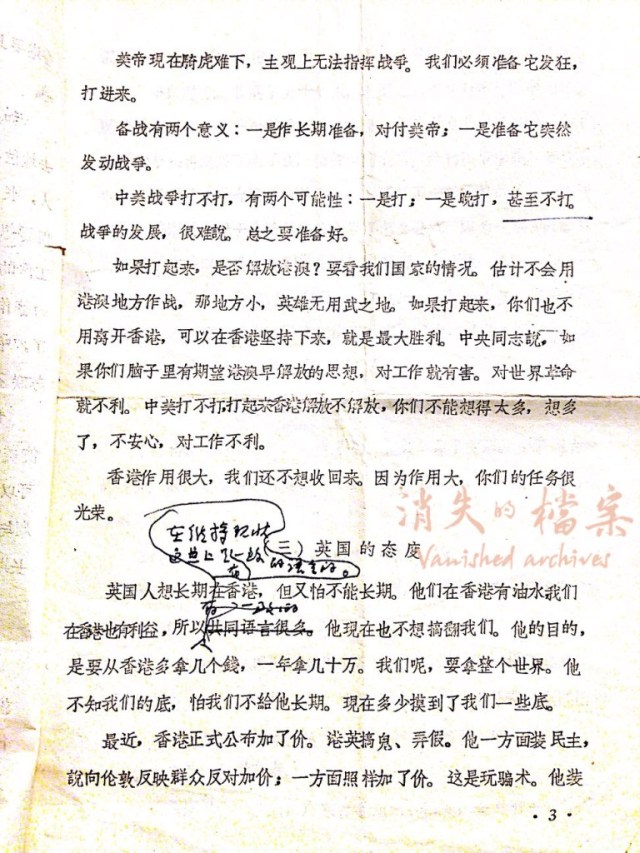 美帝现在騎虎难下，主观上无法指挥战爭。我们必须准备它发狂，
打进来。
备战有两个意义：一是作长期准备，对付美帝；一是准备它突然
发动战爭。
中美战爭打不打，有两个可能性：一是打；一是晚打，甚至不打。
战爭的发展，很难說。总之要准备好。
如果打起来，是否解放港澳？要看我们国家的情况。估计不会用
港澳地方作战，那地方小，英雄无用武之地。如果打起来，你们也不
用离开香港，可以在香港坚持下来，就是最大胜利。中央同志說，如
果你们脑子里有期望港澳早解放的思想，对工作就有害。对世界革命
就不利。中美打不打，打起来香港解放不解放，你们不能想得太多，想多
了，不安心，对工作不利。
香港作用很大，我们还不想收回来。因为作用大，你们的任务很
光荣。
消失的檔案
Vanished archives
在维持现状
这点上
有
的语言的。
（三）英国的态度
英国人想长期在香港，但又怕不能长期。他们在香港有油水我们
在香港也有利益，所以共同语言很多。他现在也不想搞翻我们。他的目的，
是要从香港多拿几个錢，一年拿几十万。我们呢，要拿整个世界。他
不知我们的底，怕我们不給他长期。现在多少摸到了我们一些底。
最近，香港正式公布加了价。港英搞鬼、弄假。他一方面装民主，
就向伦敦反映群众反对加价；一方面照样加了价。这是玩騙术。他装
· 3 ·